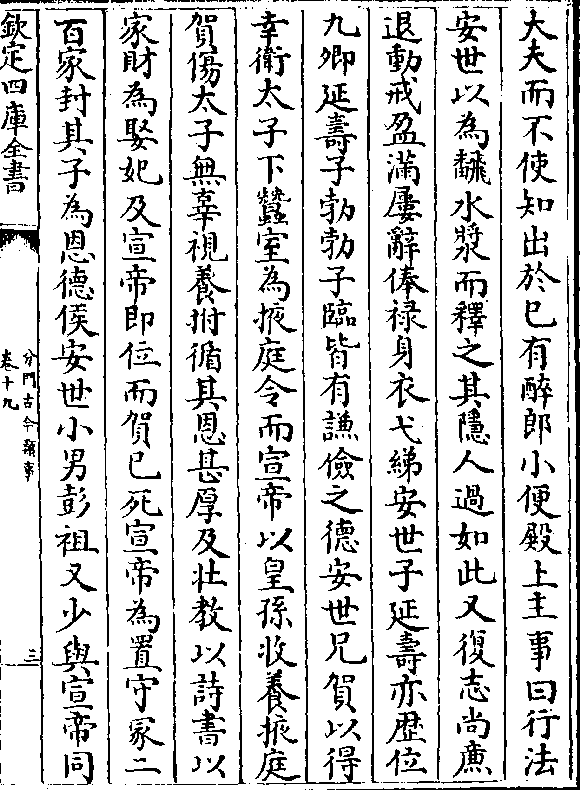 大夫而不使知出於已有醉郎小便殿上主事曰行法
安世以為飜水漿而釋之其隱人過如此又復志尚㢘
退動戒盈滿屢辭俸祿身衣弋綈安世子延壽亦歴位
九卿延壽子勃勃子臨皆有謙儉之德安世兄賀以得
幸衛太子下蠶室為掖庭令而宣帝以皇孫收養掖庭
賀傷太子無辜視養拊循其恩甚厚及壯教以詩書以
家財為娶妃及宣帝即位而賀已死宣帝為置守冢二
百家封其子為恩德侯安世小男彭祖又少與宣帝同
欽定四庫全書
分門古今類事
卷十九
三